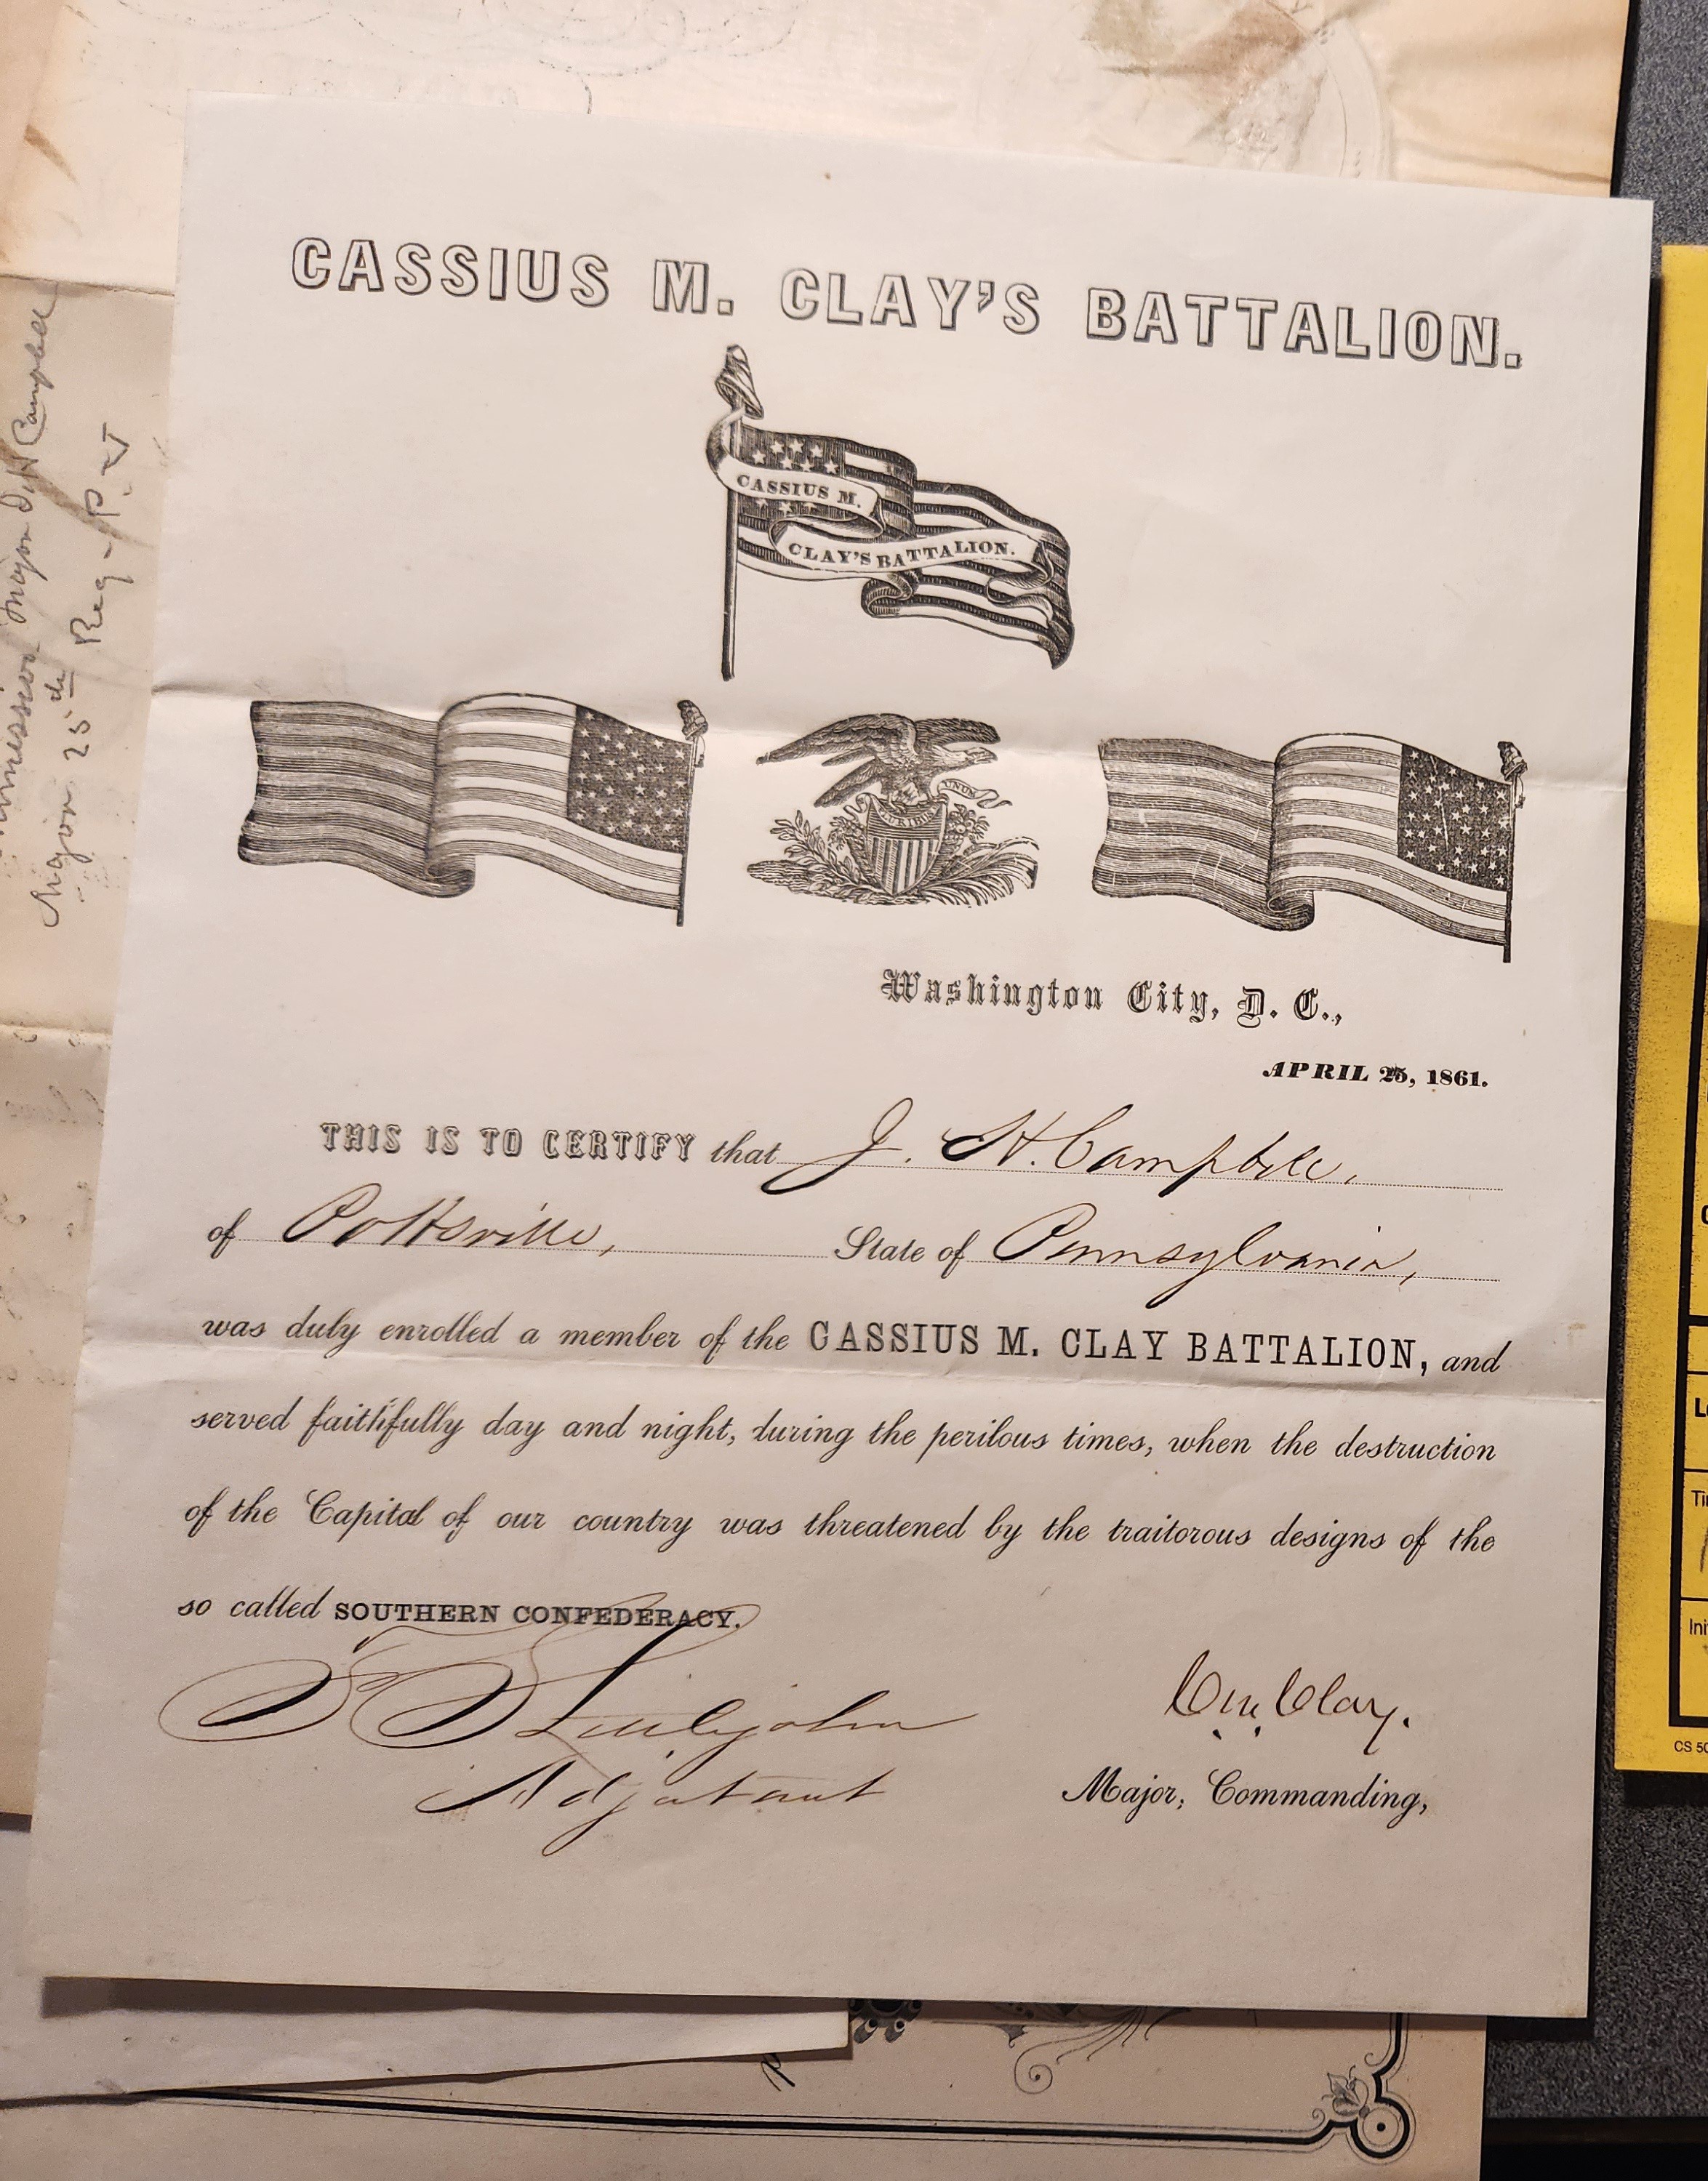 CASSIUS M. CLAY'S BATTALION.
CASSIUS M.
CLAY'S BATTALION.
UNUM
PLURIBUS
Washington City, D. C.,
APRIL 25, 1861.
THIS IS TO CERTIFY that J. H. Campbell,
of Pottsville, State of Pennsylvania,
was duly enrolled a member of the CASSIUS M. CLAY BATTALION, and
served faithfully day and night, during the perilous times, when the destruction
of the Capital of our country was threatened by the traitorous designs of the
so called SOUTHERN CONFEDERACY.
Littlejohn
Adjutant
C. M. Clay.
Major, Commanding,
Major J H Campbell
Major 25th Reg - P. V
CS 50